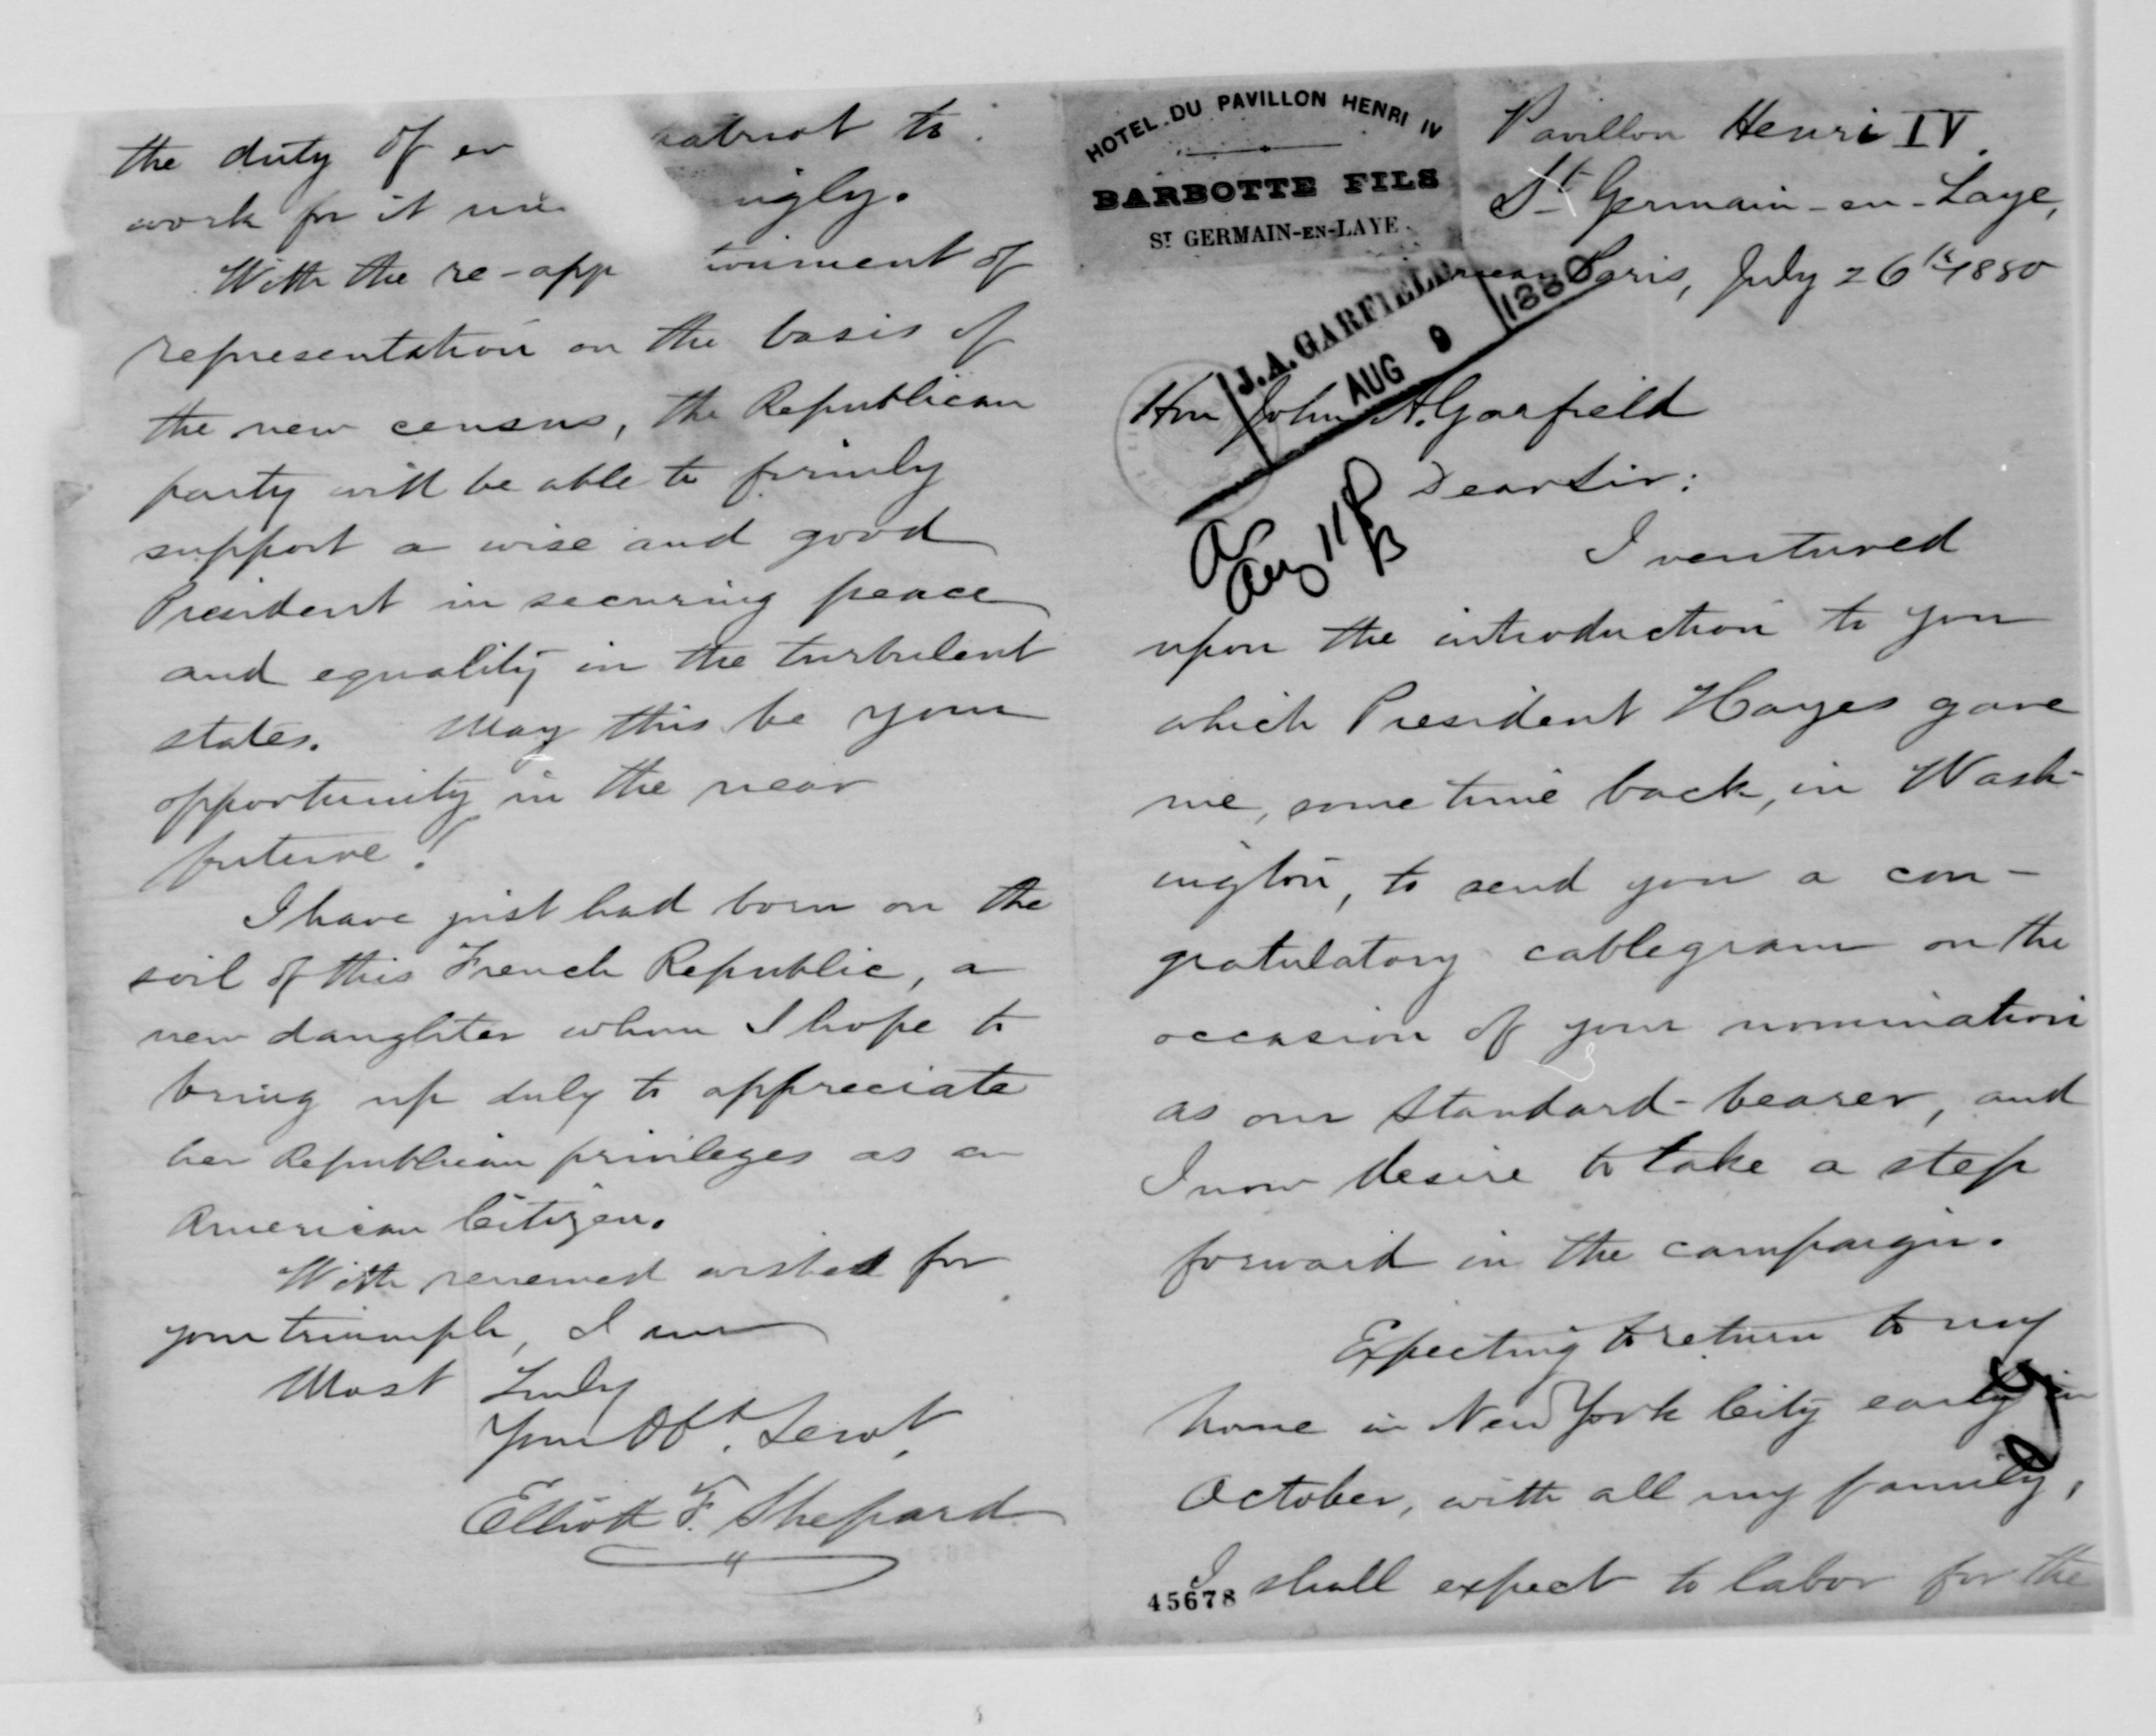 HOTEL DU PAVILLON HENRI IV
BARBOTTE FILS
ST GERMAIN-EN-LAYE
Pavillon Henri IV.
St Germain-en-Laye,
near Paris, July 26th 1880
J.A. GARFIELD
AUG 9 1880
Hon John A. Garfield
Dear Sir:
Aug 11
I ventured
upon the introduction to you
which President Hayes gave
me, some time back, in Wash-
ington, to send you a con-
gratulatory cablegram on the
occasion of your nomination
as our standard-bearer, and
I now desire to take a step
forward in the campaign.
Expecting to return to my
home in New York City early in
October, with all my family,
I shall expect to labor for the
45678
the duty of patriot to
work for it
With the re-app
representation on the basis of
the new census, the Republican
party will be able to firmly
support a wise and good
President in securing peace
and equality in the turbulent
states. May this be your
opportunity in the near
future!
I have just had born on the
soil of this French Republic, a
new daughter whom I hope to
bring up duly to appreciate
her Republican privileges as an
American Citizen.
With renewed wishes for
your triumph, I am
Most Truly
Your Obt. Servt.
Elliott F. Shepard